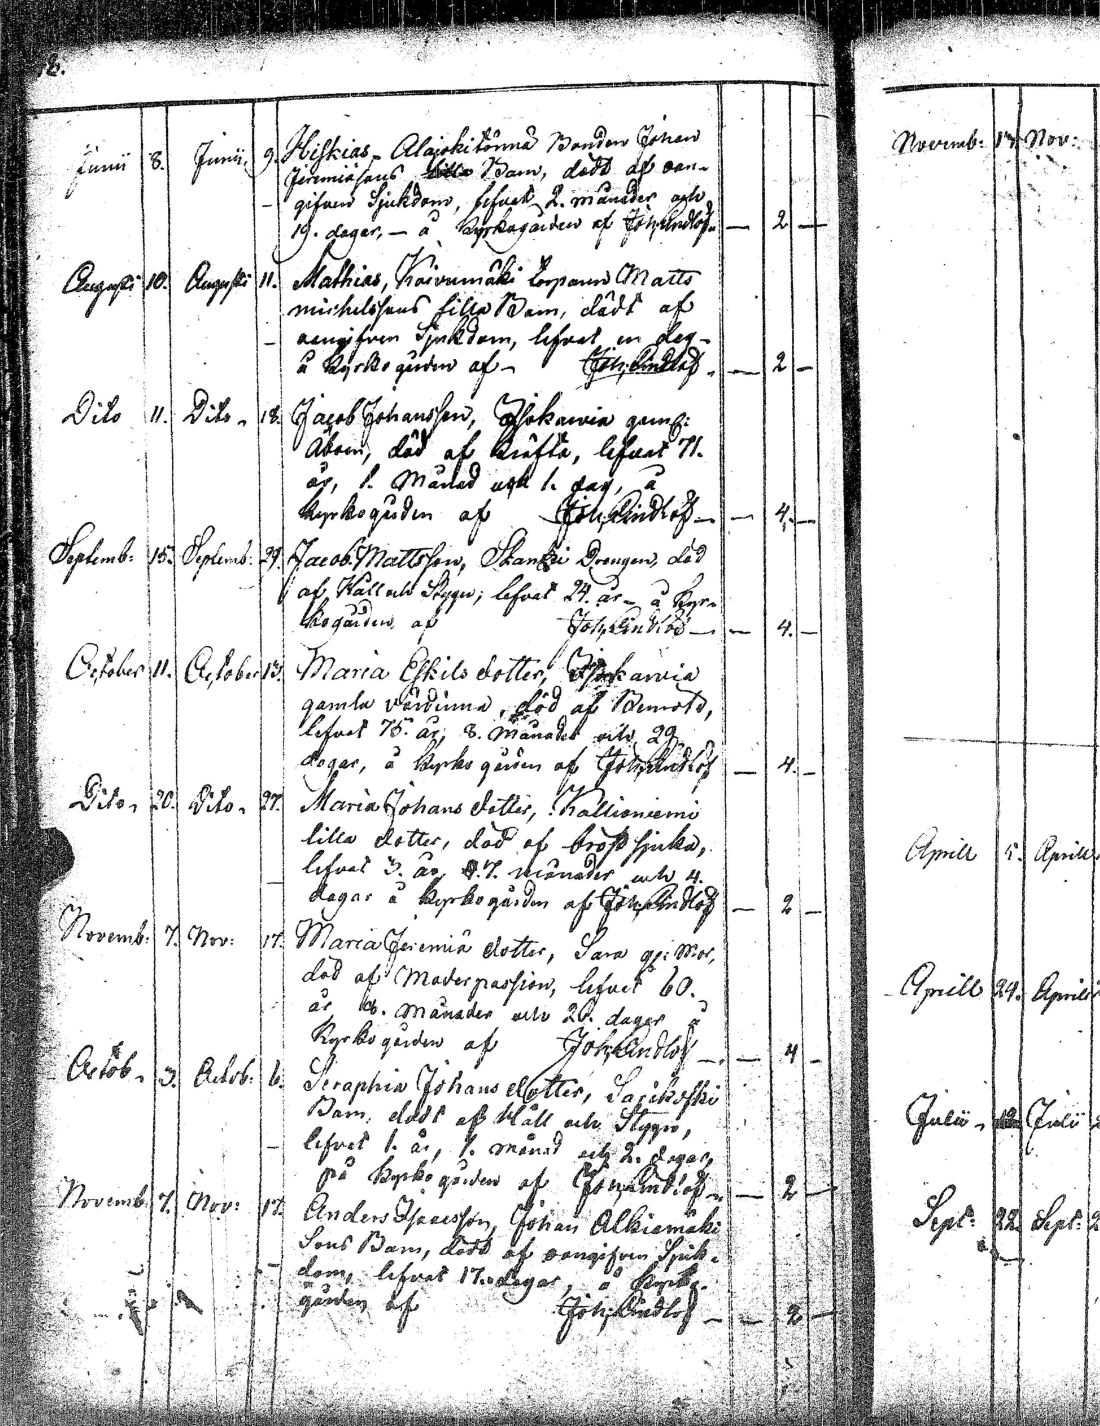 Junii 8. Junii 9. Hiskias Alajokitönnä Bonden Johan
Jeremiæsons Barn, dödt af oan-
gifven Sjukdom, lefvat 2. månader och
19. dagar, — å kyrkogården af Joh. Lindlöf — 2 —
Augusti 10. Augusti 11. Mathias, Koivumäki torparen Matts
michelssons lilla Barn, dödt af
oangifven Sjukdom, lefvat en dag
å kyrkogården af — Joh. Lindlöf — 2 —
Dito 11. Dito 18. Jacob Johansson, gamf:
Åboen, död af kräfta, lefvat 71.
år, 1. Månad och 1. dag, å
kyrkogården af Joh. Lindlöf — 4. —
Septemb: 15. Septemb: 29. Jacob Mattsson, Drengen, död
af Håll och Stygn, lefvat 24. år å kyr-
kogården af Joh. Lindlöf — 4. —
October 11. October 13. Maria Eskils dotter,
gamla värdinna, död af
lefvat 75. år, 8. månader och 29
dagar, å kyrkogården af Joh. Lindlöf — 4. —
Dito 20. Dito 27. Maria Johans dotter, Kallioniemi
lilla dotter, död af bröstsjuka,
lefvat 3. år, 7. månader och 4.
dagar å kyrkogården af Joh. Lindlöf — 2 —
Novemb: 7. Nov: 17. Maria Jeremiæ dotter, Mor,
död af Moderpassion, lefvat 60.
år månader och dagar å
kyrkogården af Joh. Lindlöf — 4 —
Octob. 3. Octob: 6. Seraphia Johans dotter,
Barn, dödt af Håll och Stygn,
lefvat 1. år, 1. månad och 2. dagar,
på kyrkogården af Joh. Lindlöf — 2 —
Novemb. 7. Nov: 17. Anders Isacsson, Johan Alkiomäki
Sons Barn, dödt af oangifven Sjuk-
dom, lefvat 17. dagar, å kyrko-
gården af Joh. Lindlöf — 2 —
Novemb: Nov:
Aprill 5. Aprill
Aprill 29. Aprill
Julii Julii
Sept: 22. Sept: 2